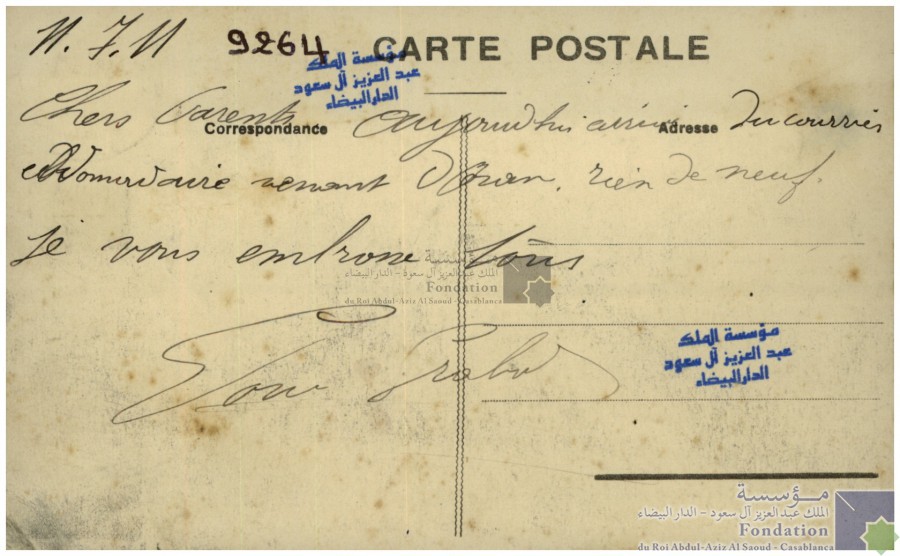 11.7.11 9264 CARTE POSTALE
مؤسسة الملك
عبد العزيز آل سعود
الدار البيضاء
Chers Parents aujourd'hui arrivée du courrier
Correspondance Adresse
venant d'Oran, rien de neuf.
je vous embrasse tous
مؤسسة
الملك عبد العزيز آل سعود - الدار البيضاء
Fondation
du Roi Abdul-Aziz Al Saoud - Casablanca
مؤسسة الملك
عبد العزيز آل سعود
الدار البيضاء
مؤسسة
الملك عبد العزيز آل سعود - الدار البيضاء
Fondation
du Roi Abdul-Aziz Al Saoud - Casablanca